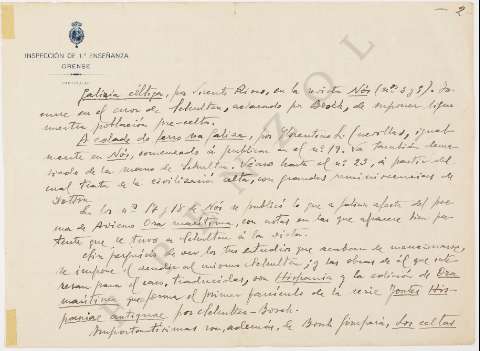 - 2
INSPECCIÓN DE 1.ª ENSEÑANZA
ORENSE
Galizia céltiga, por Vicente Risco, en la revista Nós (nºs 3 y 5).
en el error de Schulten, aclarado por Bosch, de suponer ligur
nuestra población pre-celta.
A edade do ferro na Galiza, por Florentino Cuevillas, igual
mente en Nós, comenzado a publicar en el nº 19. Va también
de la mano de Schulten. Véase hasta el nº 23, á partir del
cual trata de la civilización celta, con grandes reminiscencias de
Dottin.
En los nº 17 y 18 de Nós se publicó lo que a Galicia afecta del poe
ma de Avieno Ora maritima, con notas en las que aparece bien pa
tente que se tuvo a Schulten á la vista.
Sin perjuicio de ver los tres estudios que acaban de mencionarse,
se impone el acudir al mismo Schulten; y las obras de él que inte
resan para el caso, traducidas, son Hispania y la edición de Ora
maritima que forma el primer fascículo de la serie Fontes His-
paniae antiquae por Schulten-Bosch.
Importantísimas son, además, de Bosch Gimpera, Los celtas